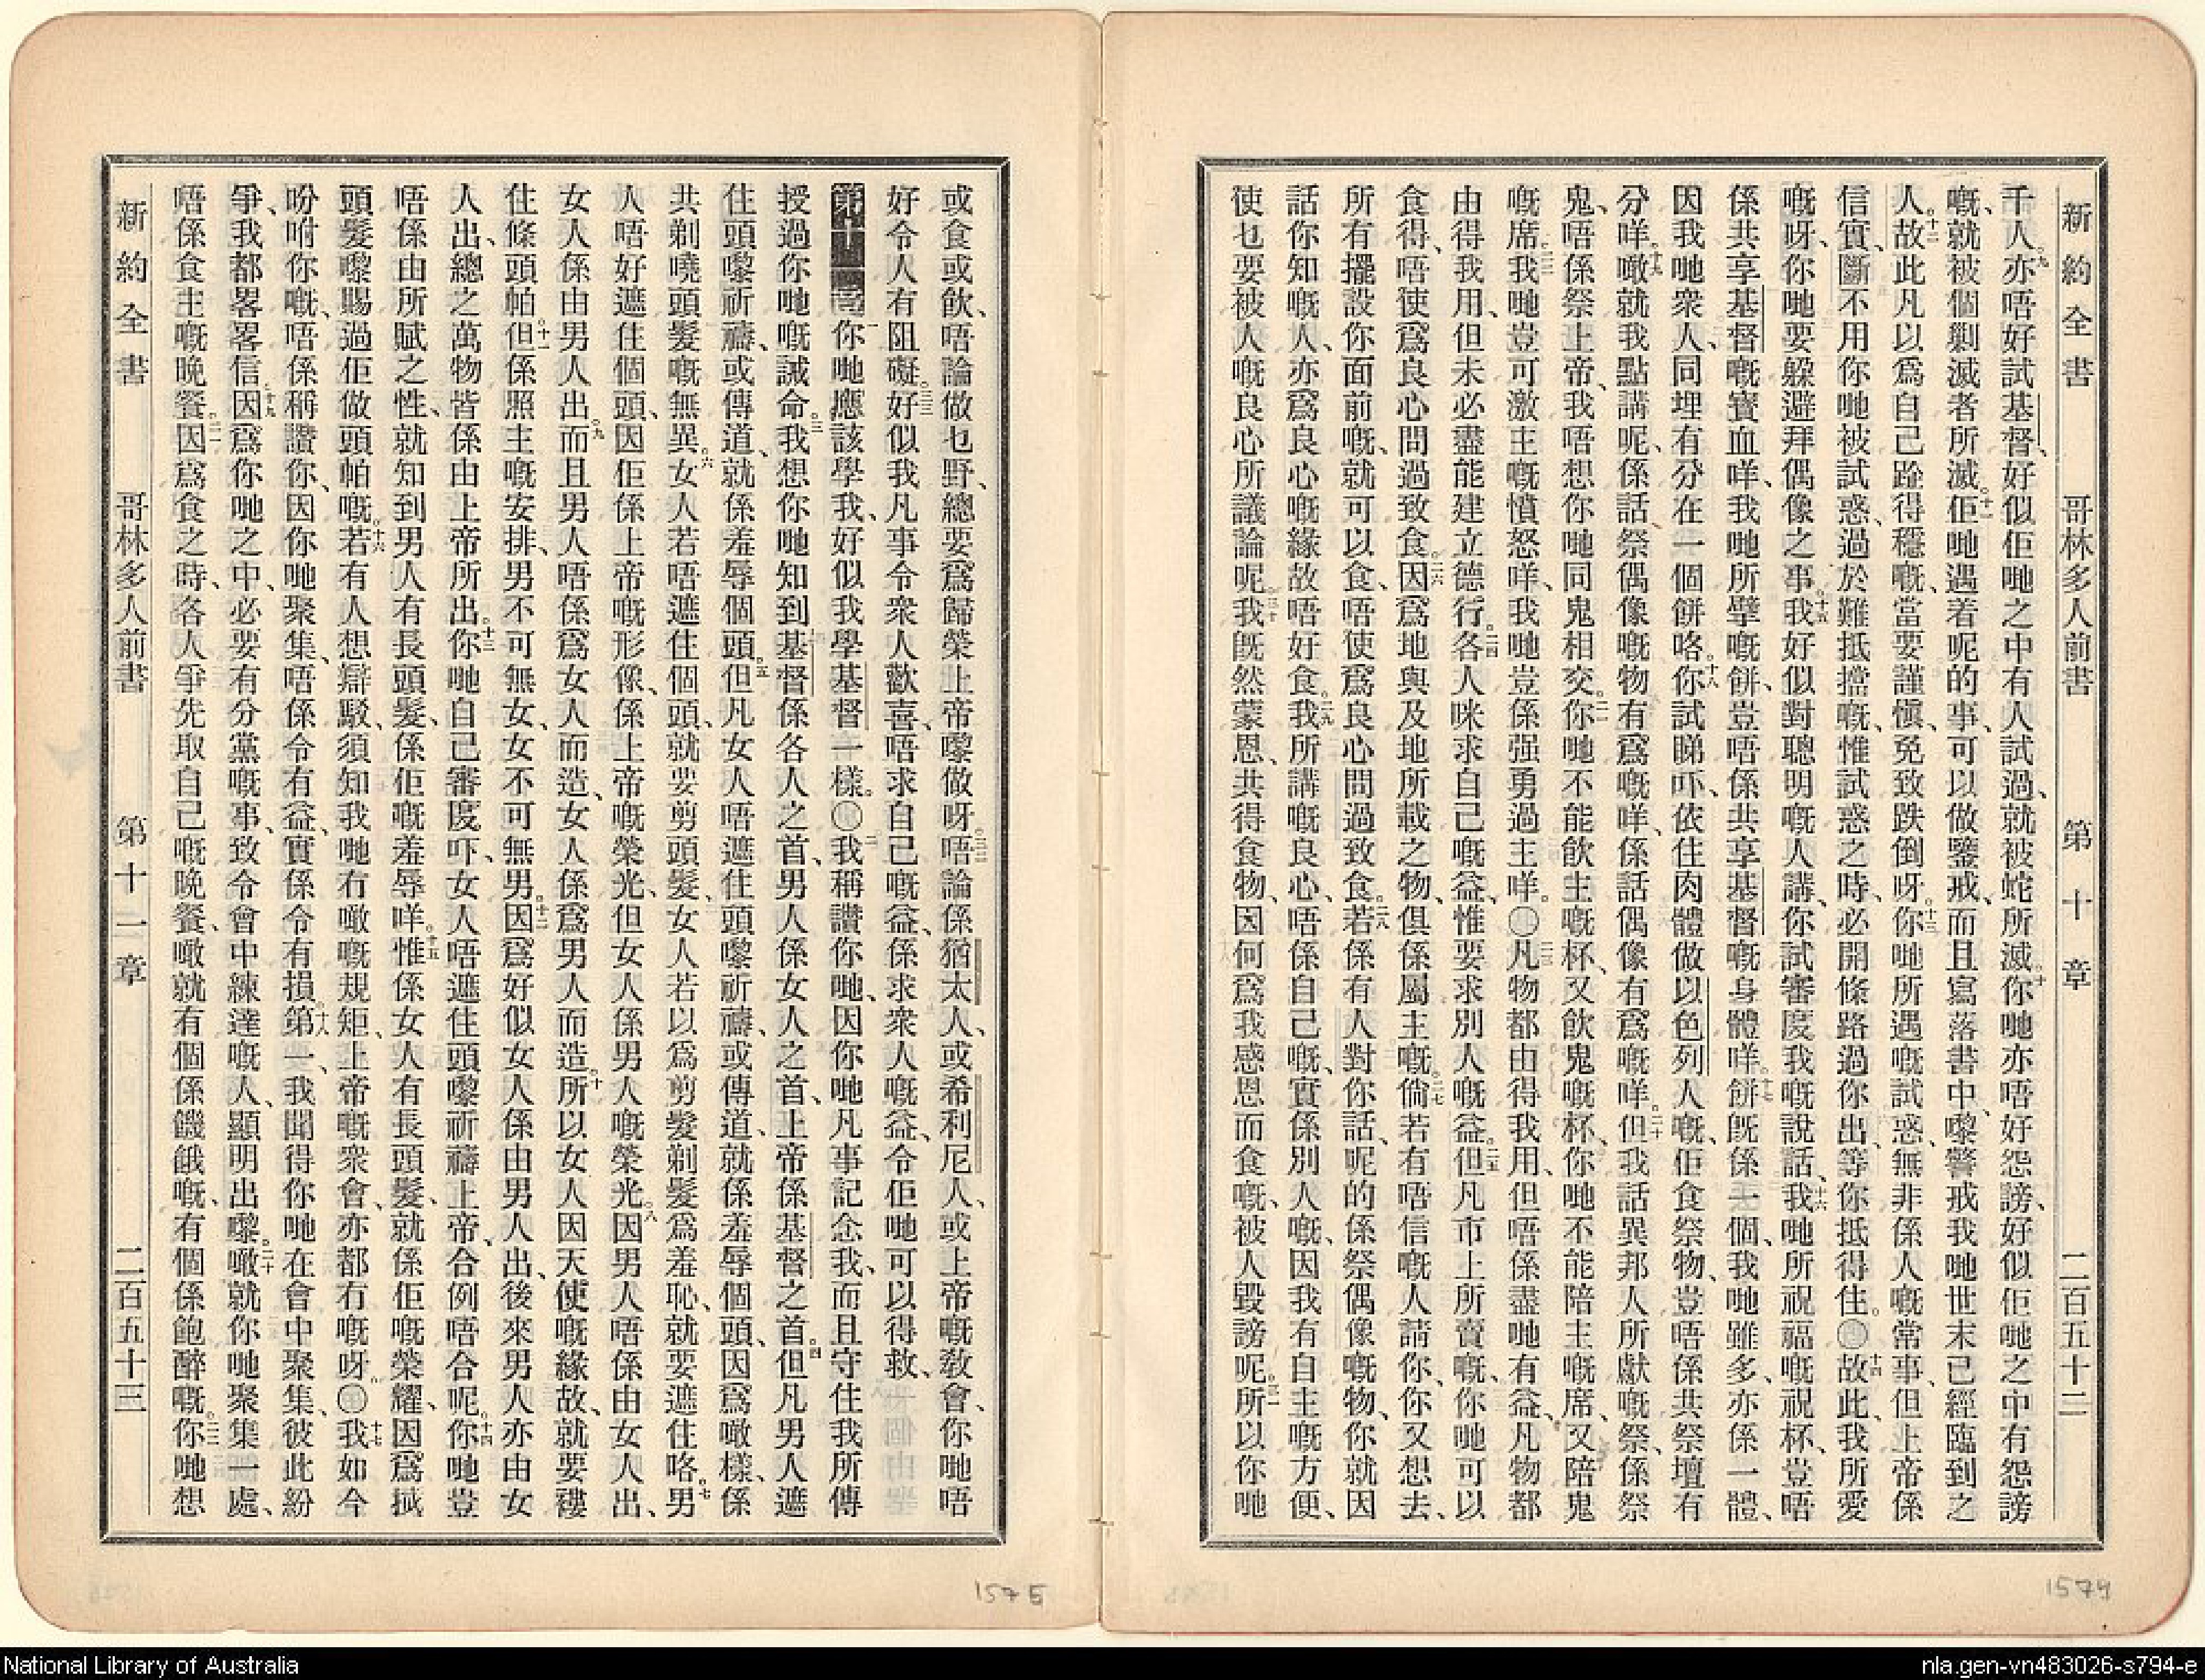 新約全書 哥林多人前書 第十章 二百五十二
千人。九亦唔好試基督、好似佢哋之中有人試過、就被蛇所滅。十你哋亦唔好怨謗、好似佢哋之中有怨謗
嘅、就被個剿滅者所滅。十一佢哋遇着呢的事、可以做鑒戒、而且寫落書中、嚟警戒我哋世末已經臨到之
人。十二故此凡以爲自己跕得穩嘅、當要謹愼、免致跌倒呀。十三你哋所遇嘅試惑、無非係人嘅常事、但上帝係
信實、斷不用你哋被試惑、過於難抵擋嘅、惟試惑之時、必開條路過你出、等你抵得住。○十四故此、我所愛
嘅呀、你哋要躲避拜偶像之事。十五我好似對聰明嘅人講、你試審度我嘅說話、十六我哋所祝福嘅祝杯、豈唔
係共享基督嘅寶血咩、我哋所擘嘅餅、豈唔係共享基督嘅身體咩。十七餅旣係一個、我哋雖多、亦係一體、
因我哋衆人、同埋有分在一個餅咯。十八你試睇吓、依住肉體做以色列人嘅、佢食祭物、豈唔係共祭壇有
分咩。十九噉就我點講呢、係話祭偶像嘅物有爲嘅咩、係話偶像有爲嘅咩。二十但我話異邦人所獻嘅祭、係祭
鬼、唔係祭上帝、我唔想你哋同鬼相交。二一你哋不能飲主嘅杯、又飲鬼嘅杯、你哋不能陪主嘅席、又陪鬼
嘅席。二二我哋豈可激主嘅憤怒咩、我哋豈係强勇過主咩。○二三凡物都由得我用、但唔係盡哋有益、凡物都
由得我用、但未必盡能建立德行。二四各人咪求自己嘅益、惟要求別人嘅益。二五但凡市上所賣嘅、你哋可以
食得、唔使爲良心問過致食。二六因爲地與及地所載之物、俱係屬主嘅。二七倘若有唔信嘅人請你、你又想去、
所有擺設你面前嘅、就可以食、唔使爲良心問過致食。二八若係有人對你話、呢的係祭偶像嘅物、你就因
話你知嘅人、亦爲良心嘅緣故唔好食。二九我所講嘅良心、唔係自己嘅、實係別人嘅、因我有自主嘅方便、
使乜要被人嘅良心所議論呢。三十我旣然蒙恩、共得食物、因何爲我感恩而食嘅、被人毀謗呢。三一所以你哋
或食或飲、唔論做乜野、總要爲歸榮上帝嚟做呀。三二唔論係猶太人、或希利尼人、或上帝嘅敎會、你哋唔
好令人有阻礙。三三好似我凡事令衆人歡喜、唔求自己嘅益、係求衆人嘅益、令佢哋可以得救、
第十一章 一你哋應該學我、好似我學基督一樣。○二我稱讚你哋、因你哋凡事記念我、而且守住我所傳
授過你哋嘅誡命。三我想你哋知到基督係各人之首、男人係女人之首、上帝係基督之首。四但凡男人遮
住頭嚟祈禱、或傳道、就係羞辱個頭。五但凡女人唔遮住頭嚟祈禱、或傳道、就係羞辱個頭、因爲噉樣、係
共剃嘵頭髮嘅無異。六女人若唔遮住個頭、就要剪頭髮、女人若以爲剪髮剃髮爲羞恥、就要遮住咯。七男
人唔好遮住個頭、因佢係上帝嘅形像、係上帝嘅榮光、但女人係男人嘅榮光。八因男人唔係由女人出、
女人係由男人出。九而且男人唔係爲女人而造、女人係爲男人而造。十所以女人因天使嘅緣故、就要褸
住條頭帕。十一但係照主嘅安排、男不可無女、女不可無男。十二因爲好似女人係由男人出、後來男人亦由女
人出、總之萬物皆係由上帝所出。十三你哋自己審度吓、女人唔遮住頭嚟祈禱上帝、合例唔合呢。十四你哋豈
唔係由所賦之性、就知到男人有長頭髮、係佢嘅羞辱咩。十五惟係女人有長頭髮、就係佢嘅榮耀、因爲揻
頭髮嚟賜過佢做頭帕嘅。十六若有人想辯駁、須知我哋冇噉嘅規矩、上帝嘅衆會、亦都冇嘅呀。○十七我如今
吩咐你嘅、唔係稱讚你、因你哋聚集、唔係令有益、實係令有損。十八第一、我聞得你哋在會中聚集、彼此紛
爭、我都畧畧信。十九因爲你哋之中、必要有分黨嘅事、致令會中練達嘅人、顯明出嚟。二十噉就你哋聚集一處、
唔係食主嘅晚餐。二一因爲食之時、各人爭先取自己嘅晚餐、噉就有個係饑餓嘅、有個係飽醉嘅。二二你哋想
新約全書 哥林多人前書 第十一章 二百五十三
1575
1574
National Library of Australia
nla.gen-vn483026-s794-e